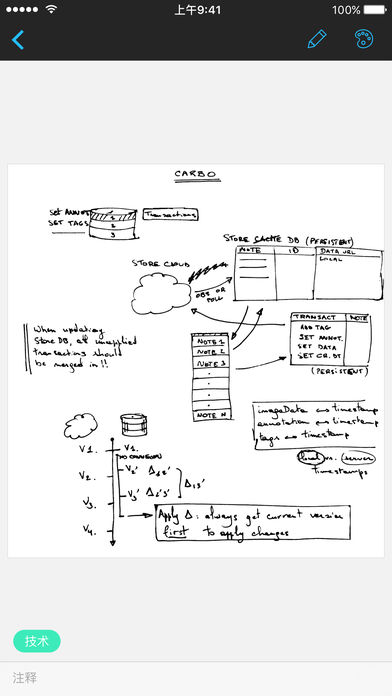 上午9:41
100%
CARBO
Set ANNOT.
SET TAGS
1
2
3
Transactions
STORE CACHE DB (PERSISTENT)
NOTE
ID
DATA URL
LOCAL
STORE CLOUD
OBS OR
POLL
When updating
Store DB, all unapplied
transactions should
be merged in!!
TRANSACT
NOTE
ADD TAG
SET ANNOT.
SET DATA
SET CR. DT
(PERSISTENT)
NOTE 1
NOTE 2
NOTE 3
NOTE N
imageData as timestamp
annotation as timestamp
tags as timestamp
local vs. server
timestamps
V1.
V1.
NO CONNEXION
V2.
V2'
V3.
V3'
V4.
Apply Δ: always get current version
first to apply changes
技术
注释